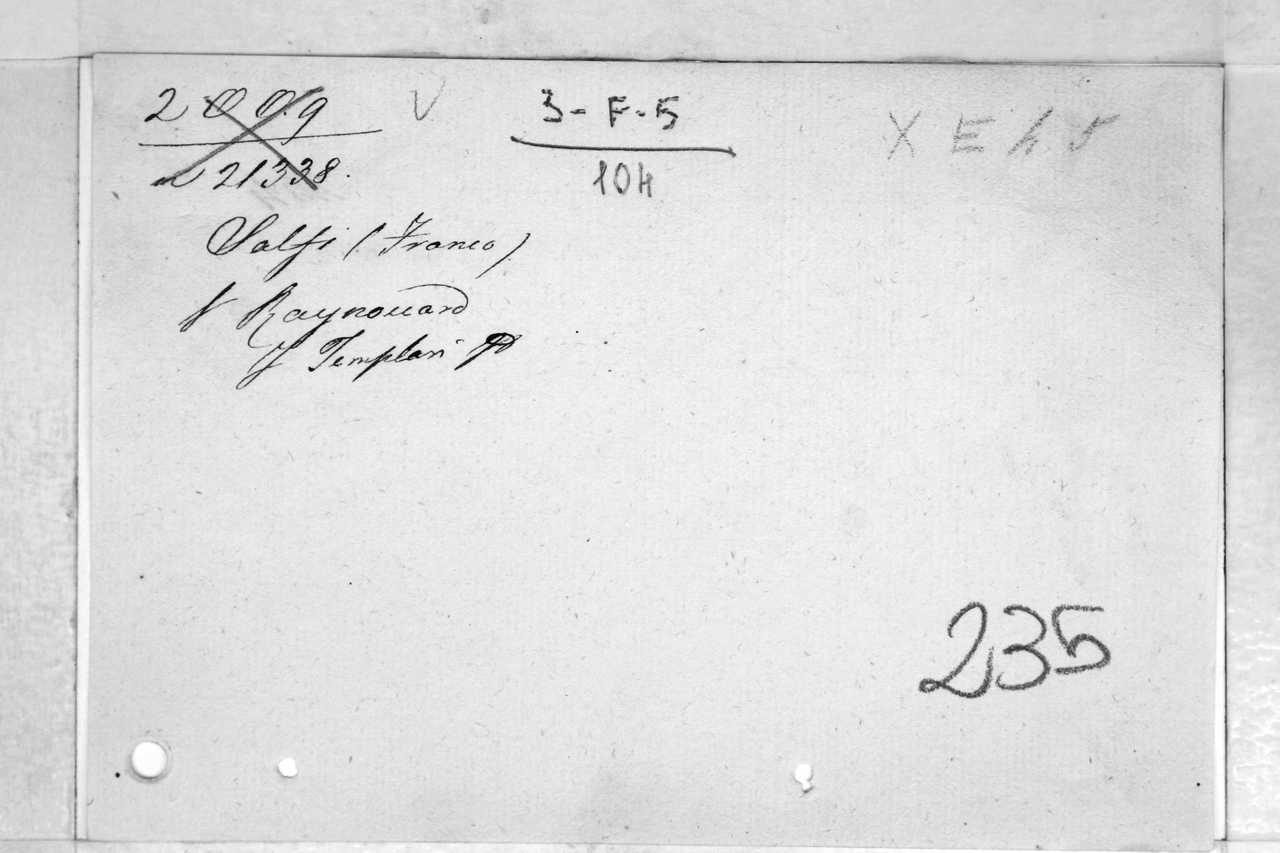 2009 V 3-F-5 X E 4 5
21338. 104
Salfi (Franco)
V Raynouard
I Templari
235